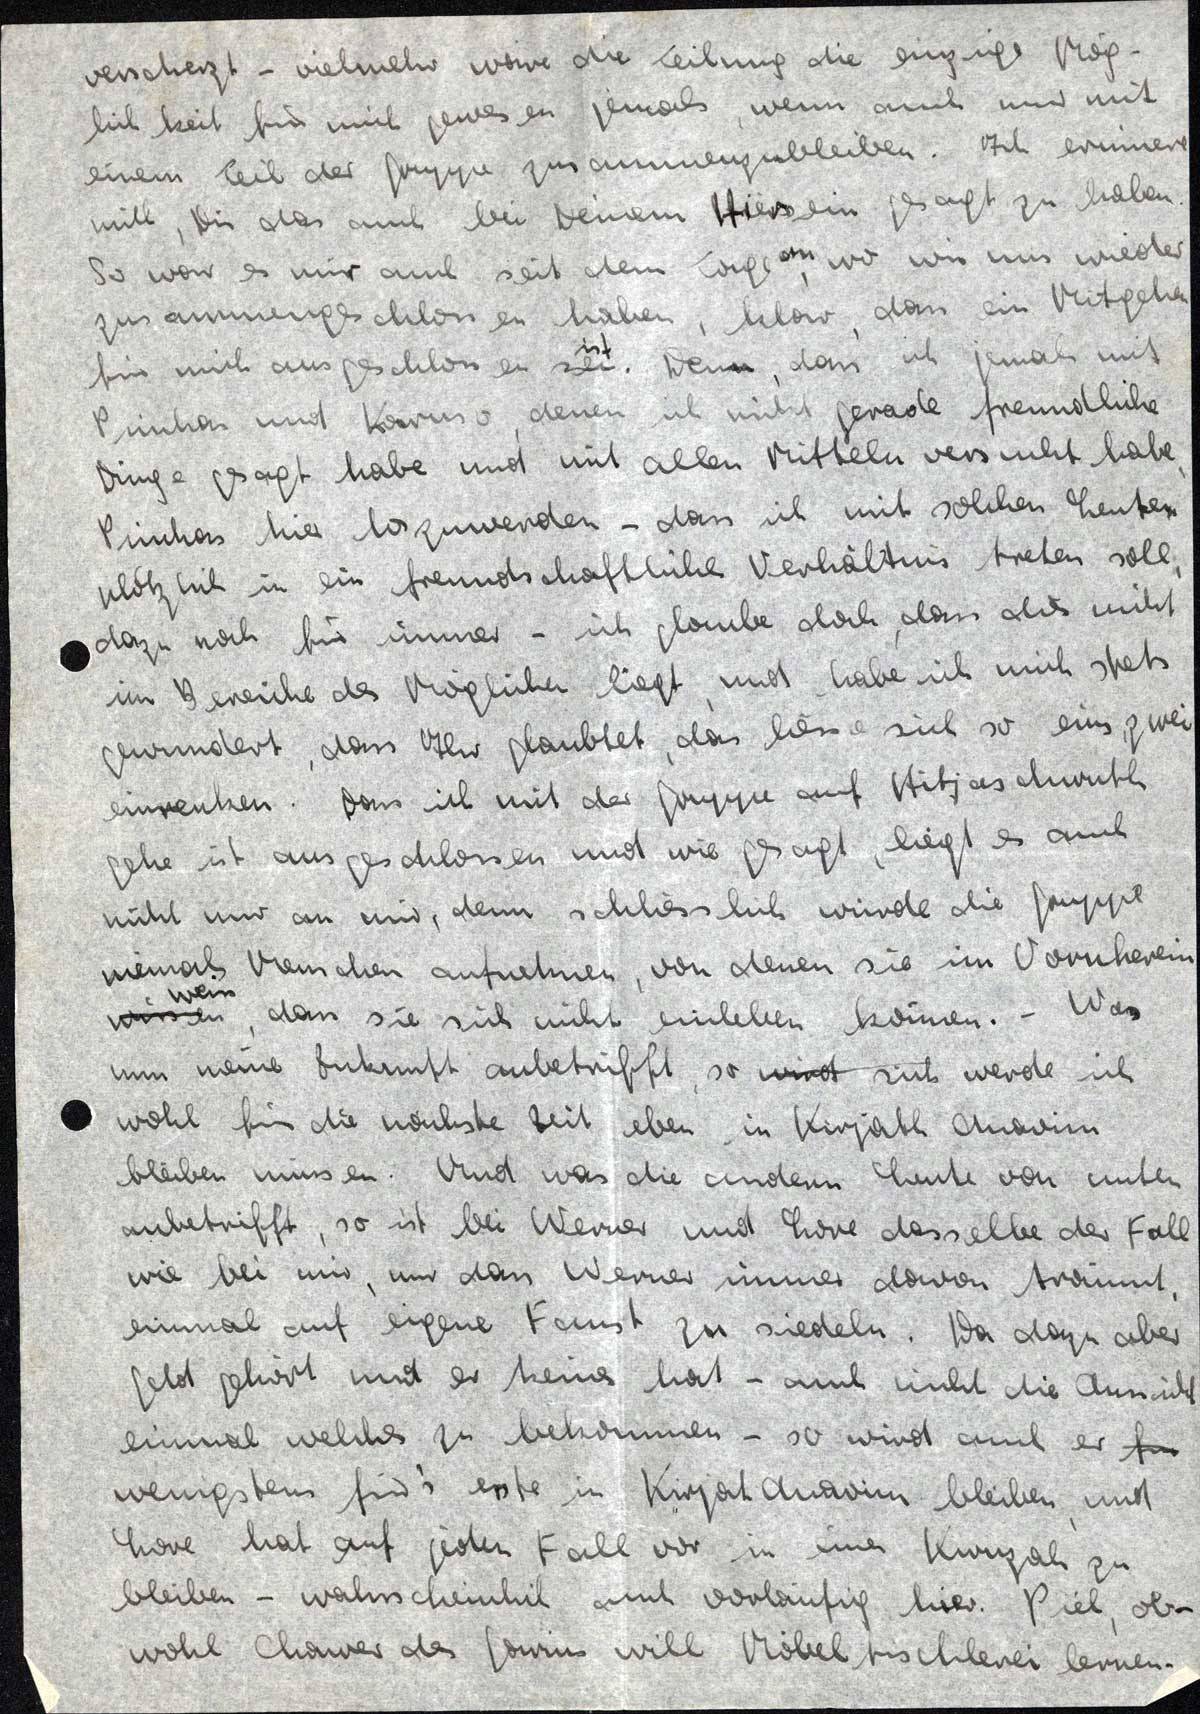 verscherzt – vielmehr wäre die Teilung die einzige Mög-
lichkeit für mich gewesen jemals, wenn auch nur mit
einem Teil der Gruppe zusammenzubleiben. Ich erinnere
mich, Dir das auch bei Deinem Hiersein gesagt zu haben.
So war es mir auch seit dem Tage an, wo wir uns wieder
zusammengeschlossen haben, klar, dass ein Mitgehen
für mich ausgeschlossen sei ist. Denn, dass ich jemals mit
Pinchas und Karuso, denen ich nicht gerade freundliche
Dinge gesagt habe und mit allen Mitteln versucht habe,
Pinchas hier loszuwerden – dass ich mit solchen Leuten
plötzlich in ein freundschaftliches Verhältnis treten soll,
dazu noch für immer – ich glaube doch, dass dies nicht
im Bereiche des Möglichen liegt, und habe ich mich stets
gewundert, dass Ihr glaubtet, das liesse sich so eins, zwei
einrenken. Dass ich mit der Gruppe auf Hitjaschwuth
gehe ist ausgeschlossen und wie gesagt, liegt es auch
nicht nur an mir, denn schliesslich würde die Gruppe
niemals Menschen aufnehmen, von denen sie im Vornherein
wissen weiss, dass sie sich nicht einleben können. – Was
nun meine Zukunft anbetrifft, so wird sich werde ich
wohl für die nächste Zeit eben in Kirjath Anavim
bleiben müssen. Und was die andern Leute von unten
anbetrifft, so ist bei Werner und Lore dasselbe der Fall
wie bei mir, nur dass Werner immer davon träumt,
einmal auf eigene Faust zu siedeln. Da dazu aber
Geld gehört und er keines hat – auch nicht die Aussicht
einmal welches zu bekommen – so wird auch er für
wenigstens für's erste in Kirjat Anavim bleiben, und
Lore hat auf jeden Fall vor in einer Kwuzah zu
bleiben – wahrscheinlich auch vorläufig hier. Piel, ob-
wohl Chawer des Garins will Möbeltischlerei lernen.